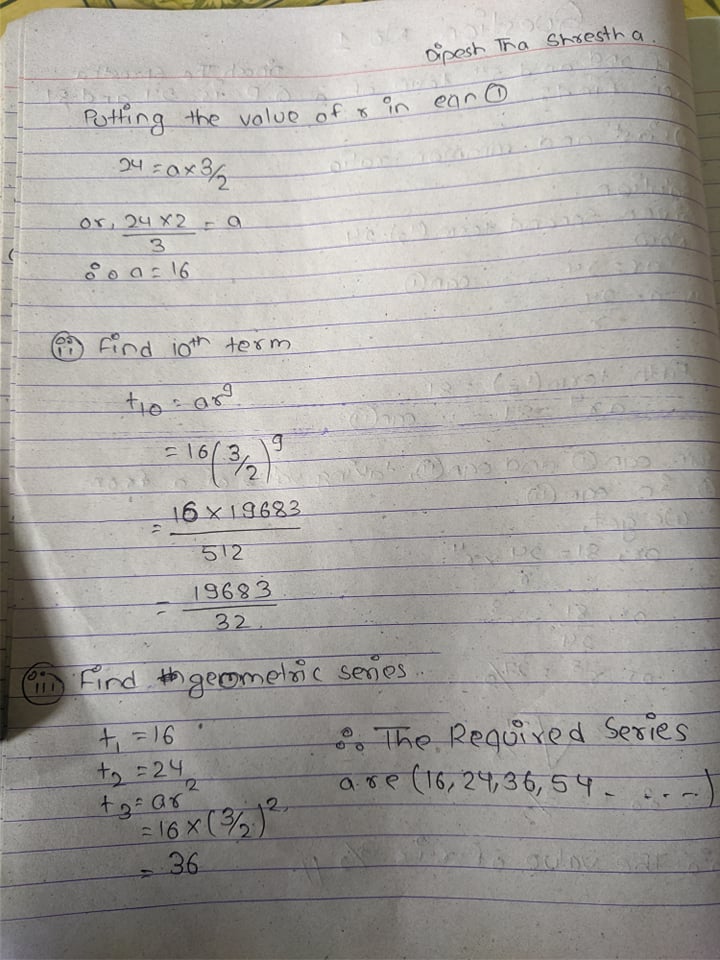 Dipesh Tha Shrestha.
Putting the value of r in eqn ①
24 = a×3/2
or, 24×2/3 = a
∴ a = 16
(ii) Find 10th term
t10 = ar⁹
= 16(3/2)⁹
= 16×19683/512
= 19683/32
(iii) Find geometric series.
t1 = 16
t2 = 24
t3 = ar²
= 16×(3/2)²
= 36
∴ The Required Series
are (16, 24, 36, 54 - . . . -)